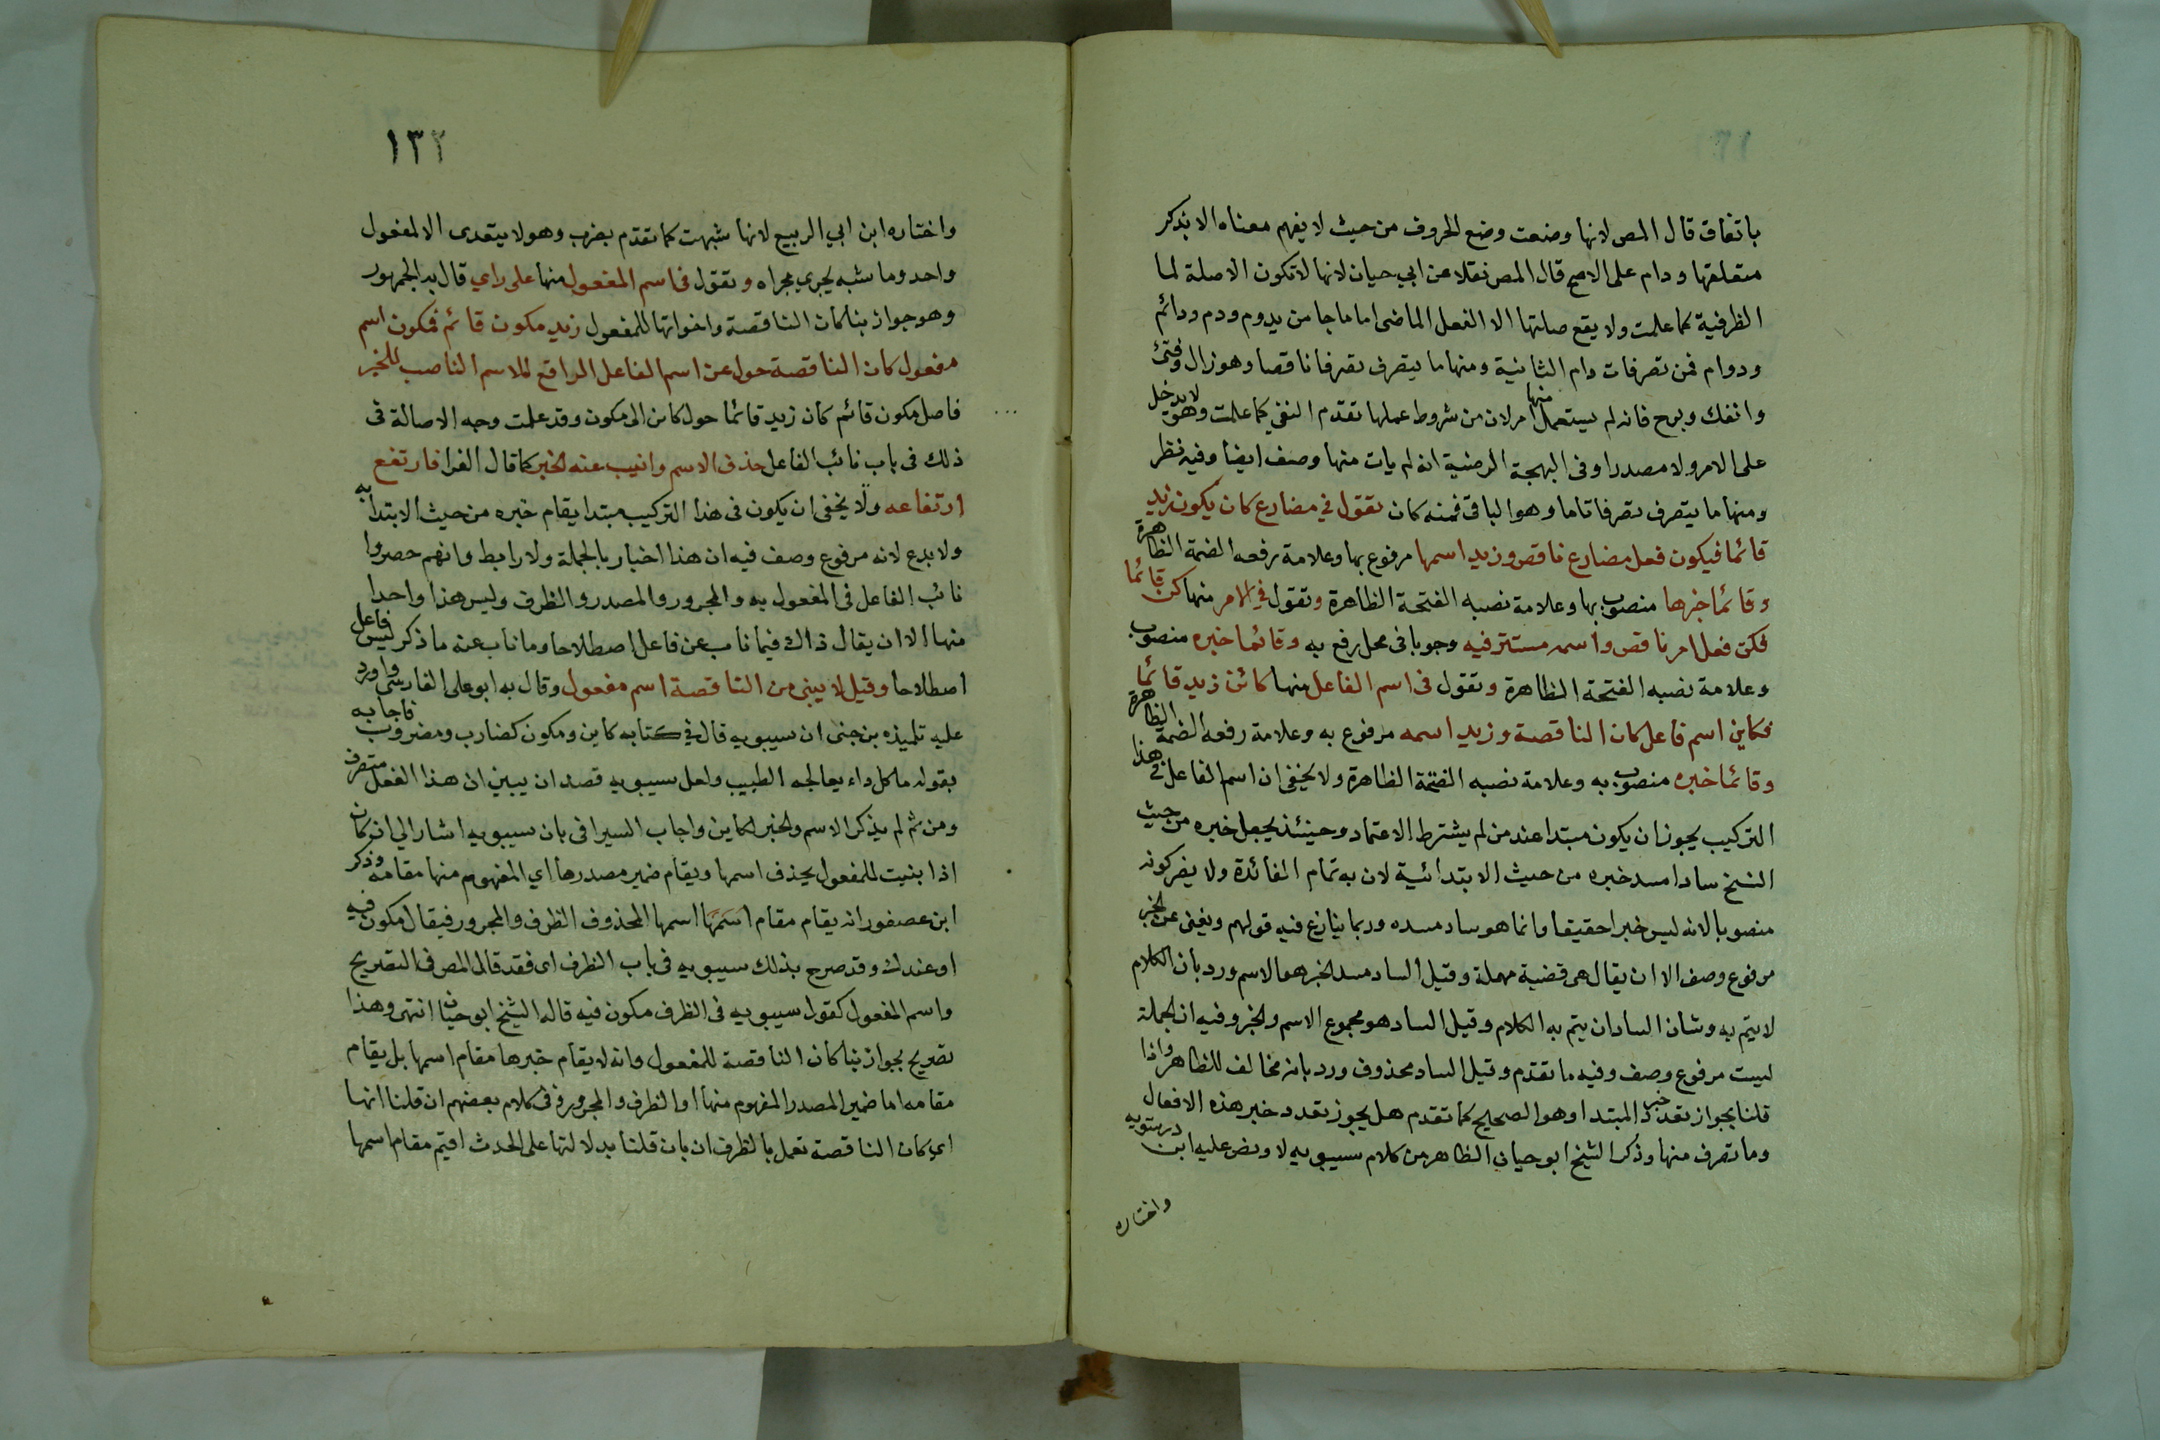 باتفاق قال المص لانها وضعت وضع الحروف من حيث لا يفهم معناه الا بذكر
متعلقها ودام على الاصح قال المص نقلا عن ابي حيان لانها لا تكون الا صلة لما
الظرفية كما علمت ولا يقع صلتها الا الفعل الماضي اما ما جا من يدوم ودم ودائم
ودوام فمن تصرفات دام الثانية ومنها ما يتصرف تصرفا ناقصا وهو زال وفتئ
وانفك وبرح فانه لم يستعمل منها امر لان من شروط عملها تقدم النفي كما علمت وهو لا يدخل
على الامر ولا مصدر وفى البهجة المرضية انه لم يات منها وصف ايضا وفيه نظر
ومنها ما يتصرف تصرفا تاما وهو الباقى فمنه كان تقول في مضارع كان يكون زيد
قائما فيكون فعل مضارع ناقص وزيد اسمها مرفوع بها وعلامة رفعه الضمة الظاهرة
وقائما خبرها منصوب بها وعلامة نصبه الفتحة الظاهرة وتقول في الامر منها كن قائما
فكن فعل امر ناقص واسمه مستتر فيه وجوبا فى محل رفع به وقائما خبره منصوب
وعلامة نصبه الفتحة الظاهرة وتقول فى اسم الفاعل منها كائن زيد قائما
فكاين اسم فاعل كان الناقصة وزيد اسمه مرفوع به وعلامة رفعه الضمة الظاهرة
وقائما خبره منصوب به وعلامة نصبه الفتحة الظاهرة ولا يخفى ان اسم الفاعل في هذا
التركيب يجوز ان يكون مبتدا عند من لم يشترط الاعتماد وحينئذ يجعل خبره من حيث
النسخ سادا مسد خبره من حيث الابتدائية لان به تمام الفائدة ولا يضر كونه
منصوبا لانه ليس خبرا حقيقا وانما هو ساد مسده وربما ينازع فيه قولهم ويغنى عن الخبر
مرفوع وصف الا ان يقال هى قضية مهملة وقيل الساد مسد الخبر هو الاسم ورد بان الكلام
لا يتم به وشان الساد ان يتم به الكلام وقيل الساد هو مجموع الاسم والخبر وفيه ان الجملة
ليست مرفوع وصف وفيه ما تقدم وقيل الساد محذوف ورد بانه مخالف للظاهر واذا
قلنا بجواز تعدد خبر المبتدا وهو الصحيح كما تقدم هل يجوز تعدد خبر هذه الافعال
وما تصرف منها وذكر الشيخ ابو حيان الظاهر من كلام سيبويه لا ونص عليه ابن درستويه
واختاره
١٣٢
واختاره ابن ابي الربيع لانها شبهت كما تقدم بضرب وهو لا يتعدى الا لمفعول
واحد وما شبه يجري مجراه وتقول فى اسم المفعول منها على راي قال به الجمهور
وهو جواز بنا كان الناقصة واخواتها للمفعول زيد مكون قائم فمكون اسم
مفعول كان الناقصة حول عن اسم الفاعل الرافع للاسم الناصب للخبر
فاصل مكون قائم كان زيد قائما حول كاين الى مكون وقد علمت وجه الاصالة فى
ذلك فى باب نائب الفاعل حذف الاسم وانيب عنه الخبر كما قال الفرا فارتفع
ارتفاعه ولا يخفى ان يكون فى هذا التركيب مبتدا يقام خبره من حيث الابتدا به
ولا بدع لانه مرفوع وصف فيه ان هذا اخبار بالجملة ولا رابط وانهم حصروا
نائب الفاعل فى المفعول به والمجرور والمصدر والظرف وليس هذا واحدا
منها الا ان يقال ذاك فيما ناب عن فاعل اصطلاحا وما ناب عنه ما ذكر ليس فاعل
اصطلاحا وقيل لا يبنى من الناقصة اسم مفعول وقال به ابو على الفارسى واورد
عليه تلميذه بن جنى ان سيبويه قال في كتابه كاين ومكون كضارب ومضروب فاجابه
بقوله ما كل داء يعالجه الطبيب ولعل سيبويه قصد ان يبين ان هذا الفعل متصرف
ومن ثم لم يذكر الاسم والخبر لكاين واجاب السيرافى بان سيبويه اشار الي ان كان
اذا بنيت للمفعول يحذف اسمها ويقام ضمير مصدرها اي المفهوم منها مقامه وذكر
ابن عصفور انه يقام مقام اسمها اسمها المحذوف الظرف والمجرور فيقال مكون فيه
او عندك وقد صرح بذلك سيبويه فى باب الظرف اى فقد قال المص فى التصريح
واسم المفعول كقول سيبويه فى الظرف مكون فيه قاله الشيخ ابو حيان انتهى وهذا
تصريح بجواز بنا كان الناقصة للمفعول وانه لا يقام خبرها مقام اسمها بل يقام
مقامه اما ضمير المصدر المفهوم منها او الظرف والمجرور وفى كلام بعضهم ان قلنا انها
اي كان الناقصة تعمل بالظرف ان بان قلنا بدلالتها على الحدث اقيم مقام اسمها